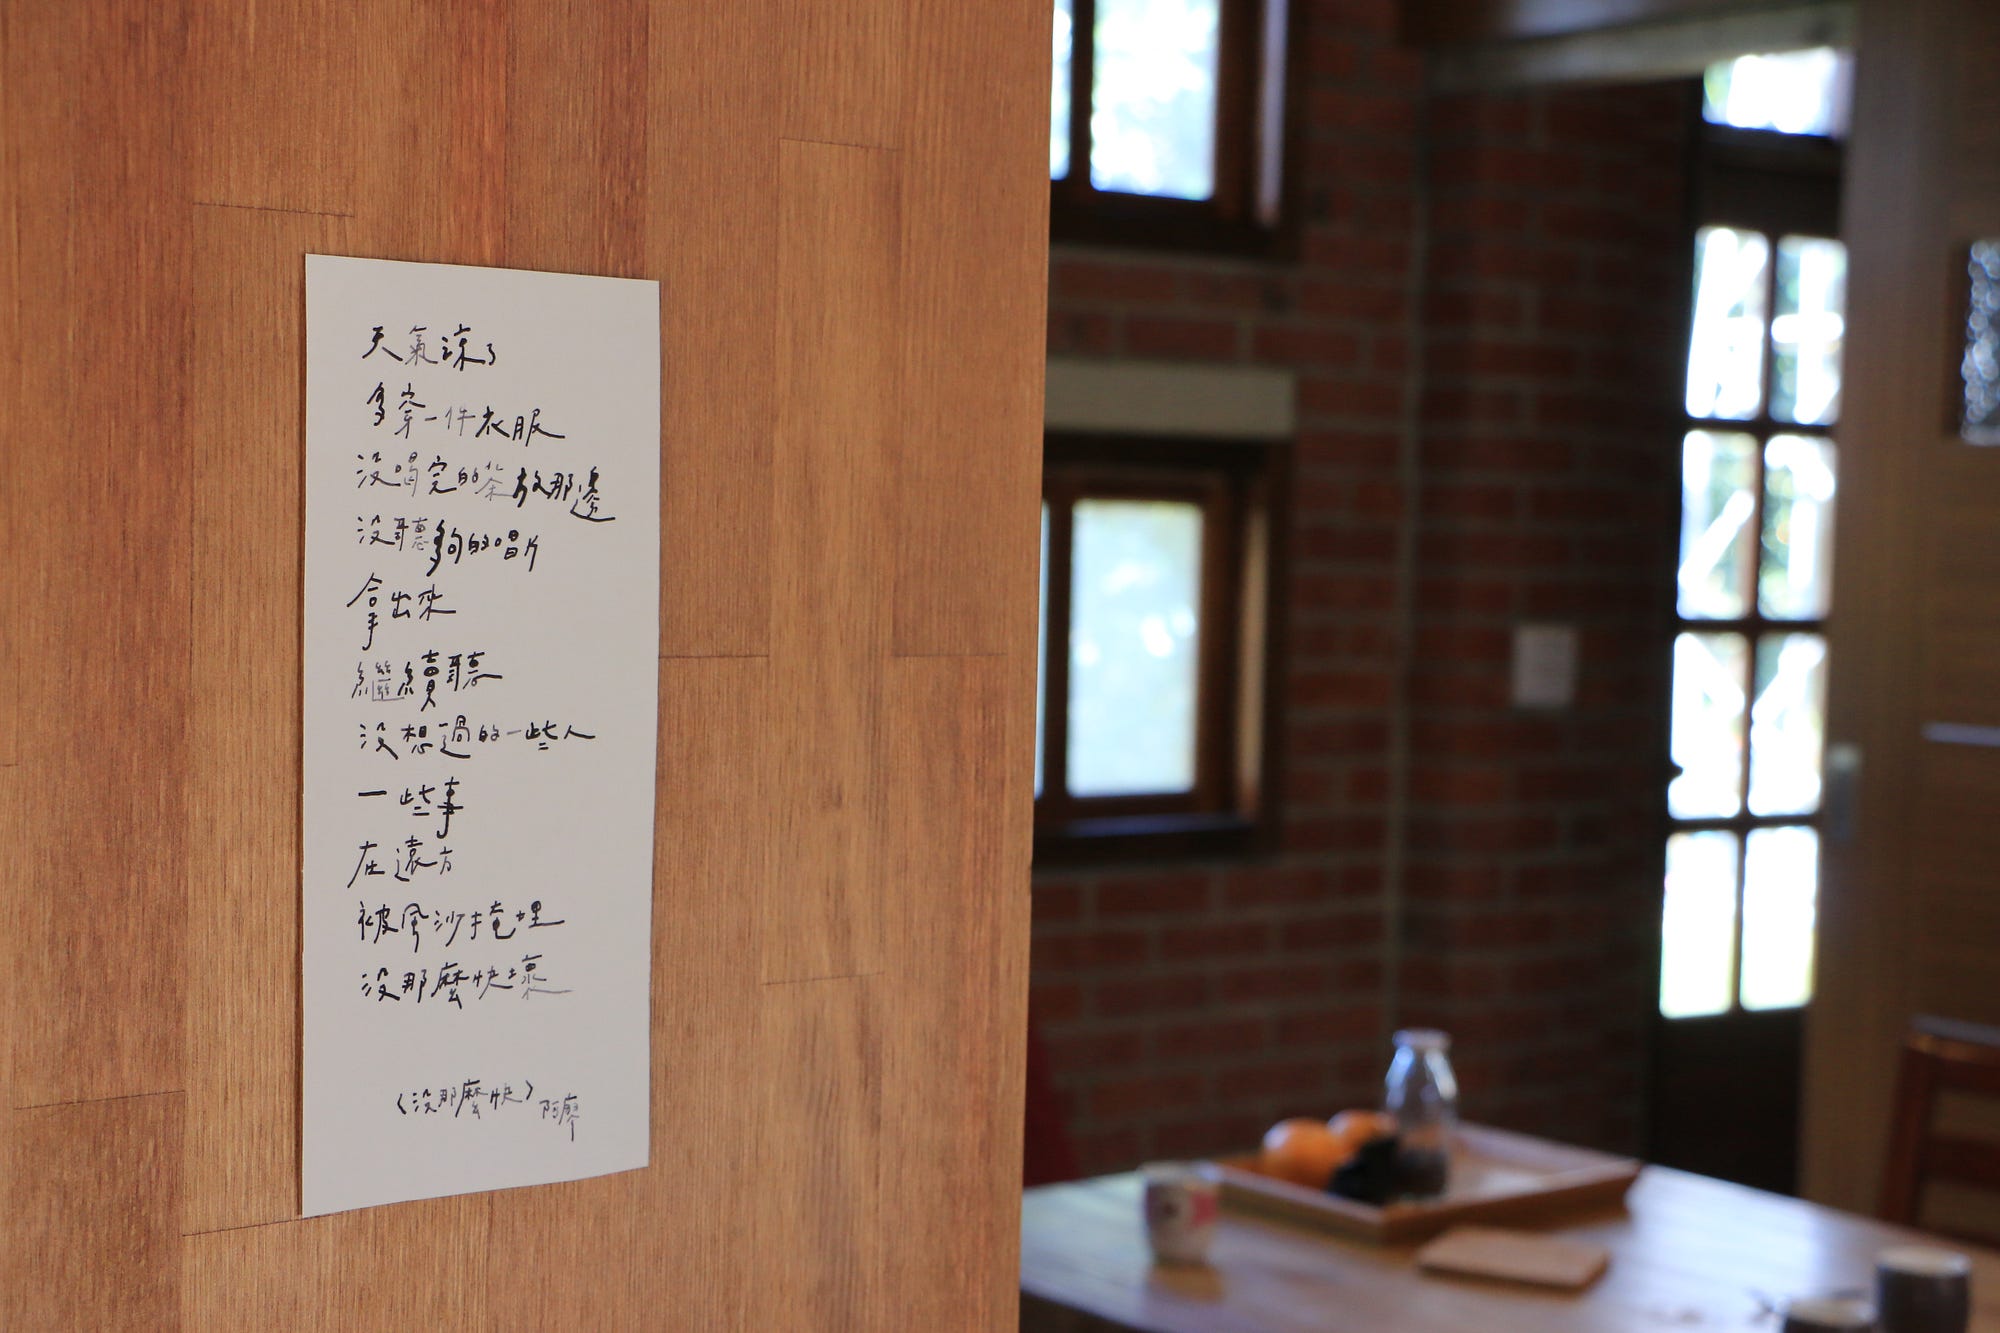 天氣涼了
多穿一件衣服
沒喝完的茶放那邊
沒聽夠的唱片
拿出來
繼續聽
沒想過的一些人
一些事
在遠方
被風沙掩埋
沒那麼快壞
〈沒那麼快〉阿廖